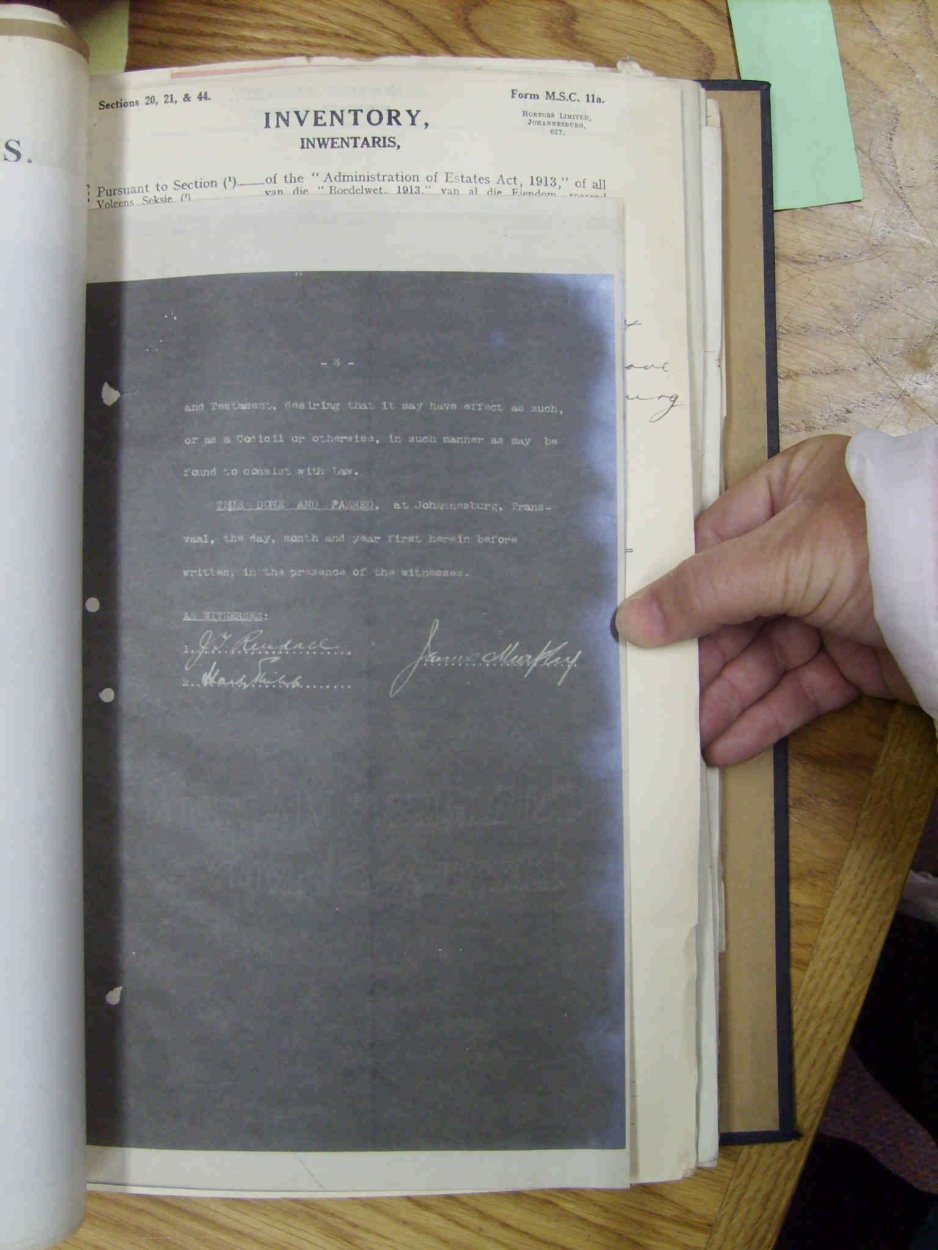 S.
Sections 20, 21, & 44.
Form M.S.C. 11a.
INVENTORY,
INWENTARIS,
HORTORS LIMITED,
JOHANNESBURG,
627.
Pursuant to Section (¹) of the "Administration of Estates Act, 1913," of all
Volgens Seksie (¹) van die "Boedelwet, 1913," van al die Eiendom
- 3 -
and Testament, desiring that it may have effect as such,
or as a Codicil or otherwise, in such manner as may be
found to consist with Law.
THIS DONE AND PASSED, at Johannesburg, Trans-
vaal, the day, month and year first herein before
written, in the presence of the witnesses.
AS WITNESSES:
1. J.T. Rendall
James Murphy
2.
urg